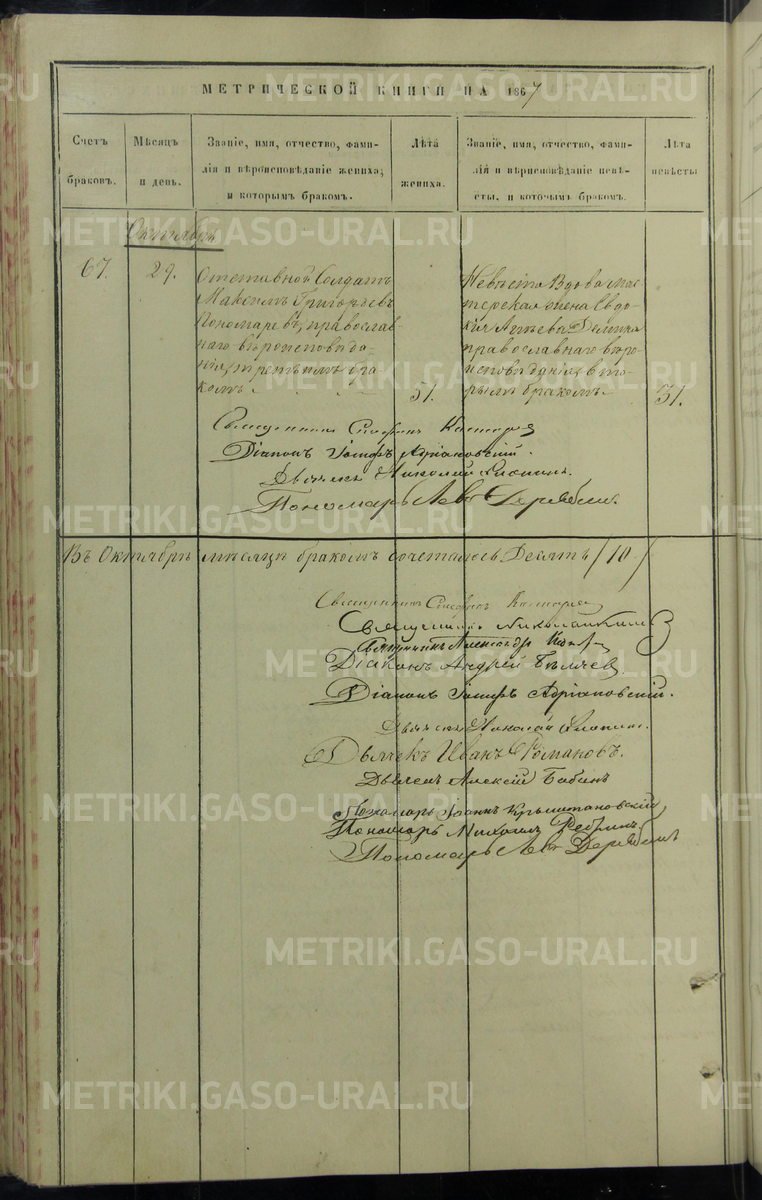 МЕТРИЧЕСКОЙ КНИГИ НА 1867
Счетъ браковъ.
Мѣсяцъ и день.
Званіе, имя, отчество, фами-
лія и вѣроисповѣданіе жениха,
и которымъ бракомъ.
Лѣта жениха.
Званіе, имя, отчество, фами-
лія и вѣроисповѣданіе невѣ-
сты, и которымъ бракомъ.
Лѣта невѣсты
Октябрь
67.
29.
Отставной Солдатъ
Максимъ Григорьевъ
Пономаревъ, православ-
наго вѣроисповѣда-
нія, третьимъ бра-
комъ.
51.
Невѣста Вдова Мас-
терская жена Евдо-
кія
православнаго вѣро-
исповѣданія, вто-
рымъ бракомъ.
51.
Священникъ Стефанъ
Діаконъ Іосифъ Адріановскій.
Дьячекъ Николай
Пономарь Левъ
Въ Октябрѣ мѣсяцѣ бракомъ сочеталось Десять /10/
Священникъ Стефанъ
Священникъ
Священникъ Александръ
Діаконъ Андрей Бѣляев
Діаконъ Іосифъ Адріановскій.
Дьячекъ Николай
Дьячекъ Иванъ Романовъ.
Дьячекъ Алексій Бабинъ
Пономарь Іоаннъ Крыштановскій
Пономарь Михаилъ
Пономарь Левъ
METRIKI.GASO-URAL.RU